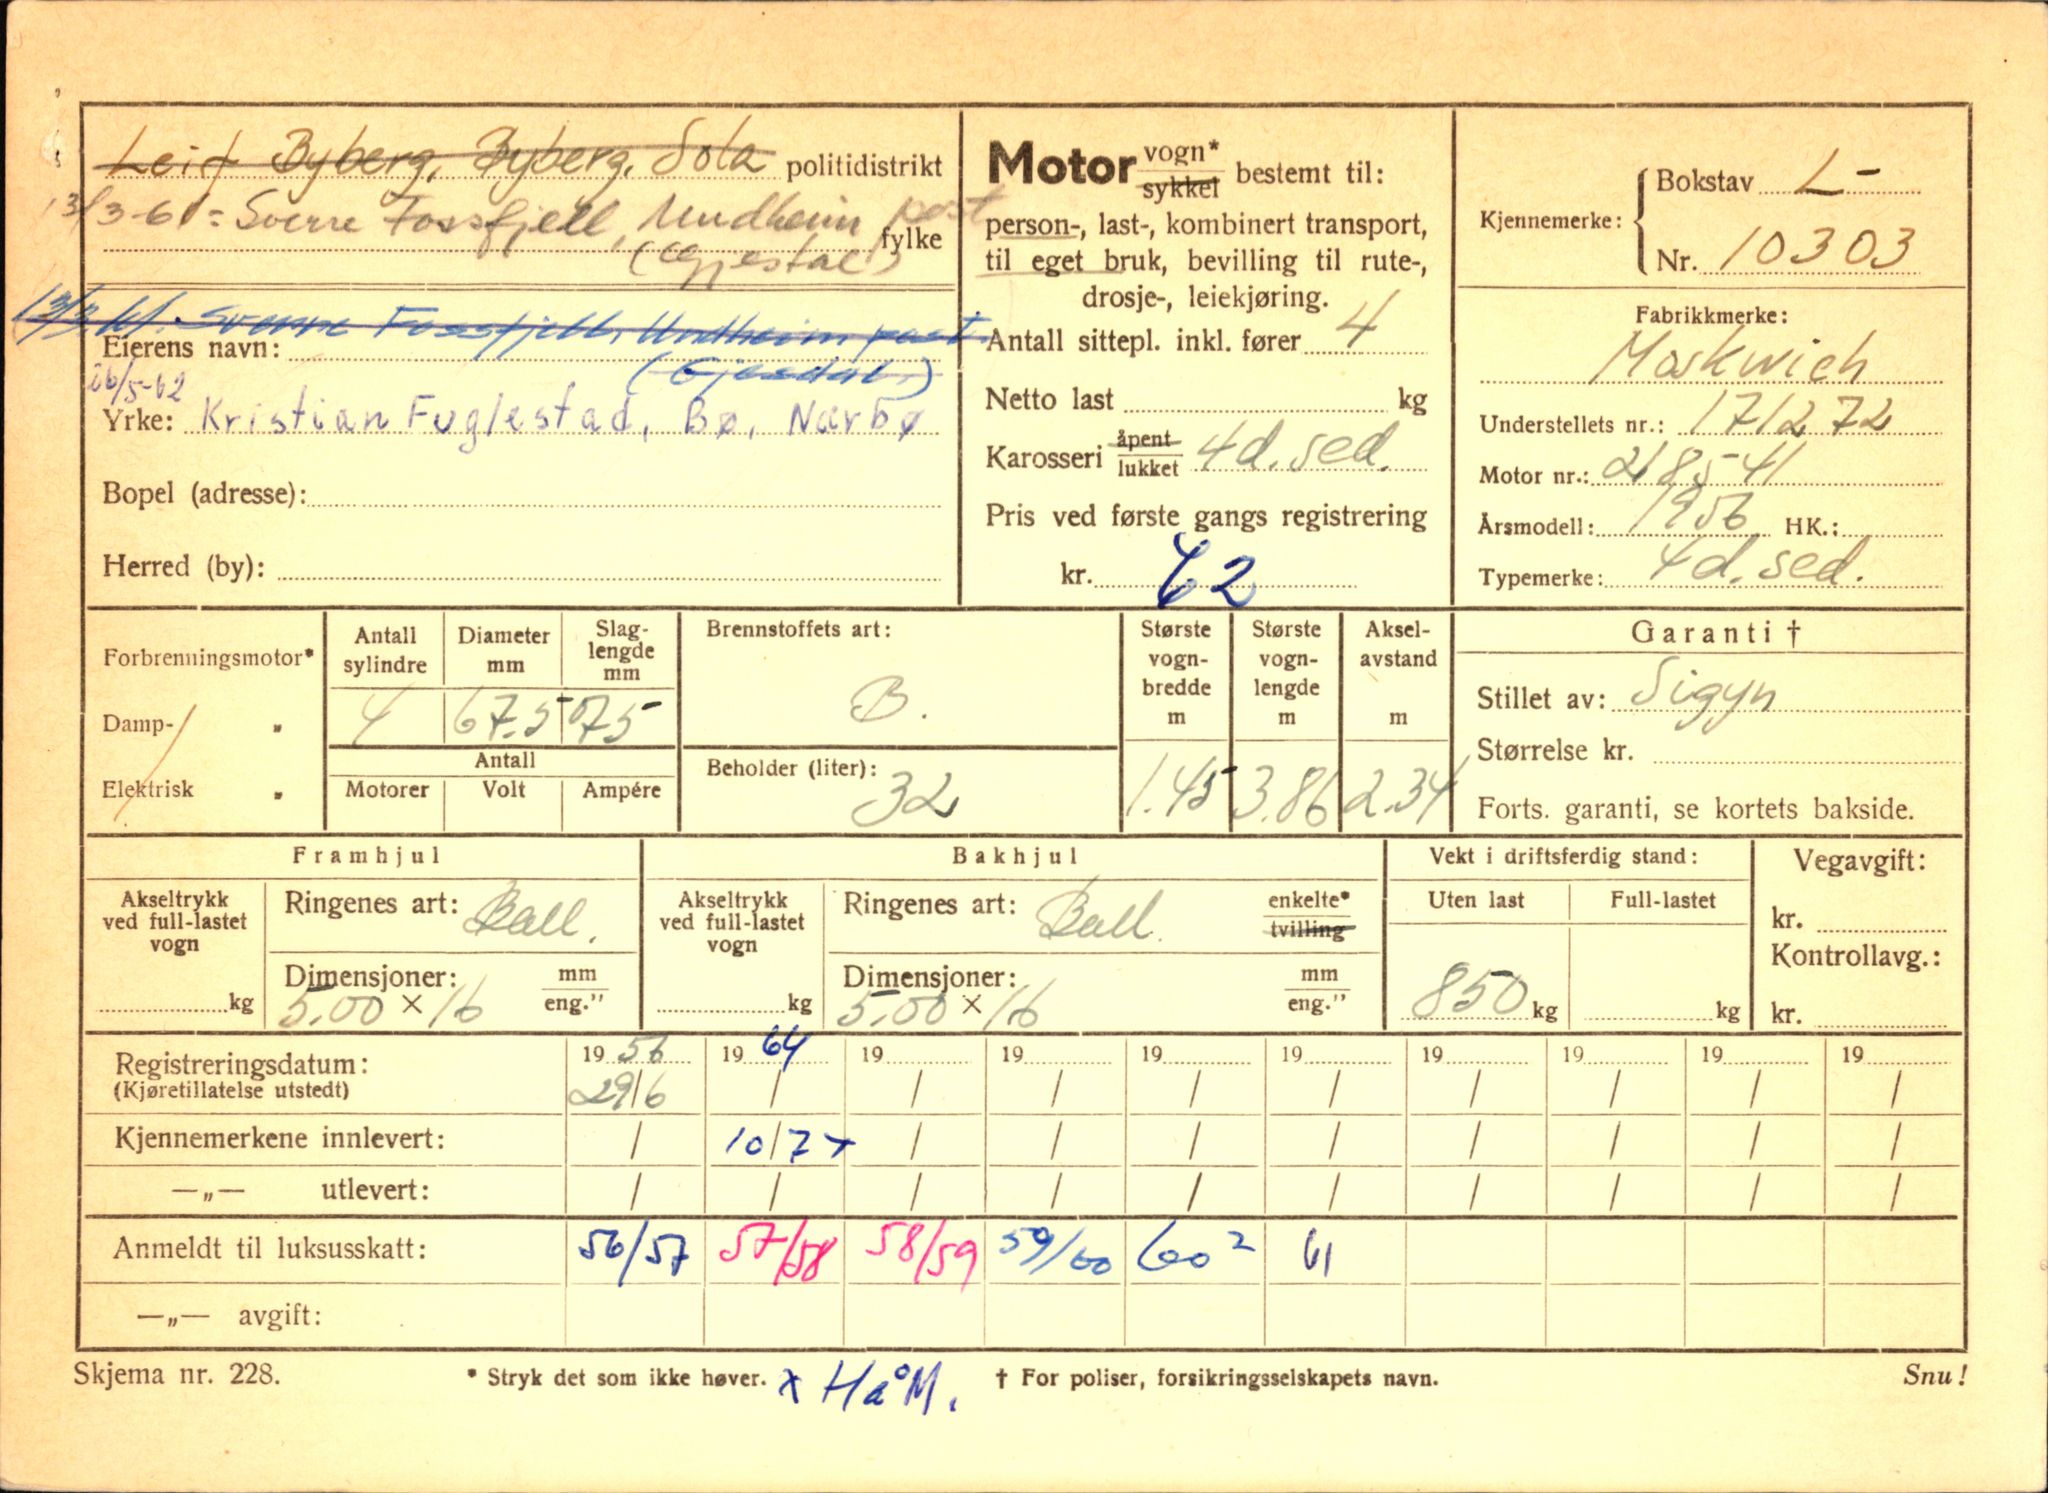 Leif Byberg, Byberg, Sola politidistrikt
13/3-61 = Sverre Fossfjell, Undheim post
fylke
(Gjestal)
13/3-61. Sverre Fossfjell, Undheim post
Eierens navn:
(Gjesdal.)
26/5-62
Yrke: Kristian Fuglestad, Bø, Nærbø
Bopel (adresse):
Herred (by):
Motor vogn* sykkel bestemt til:
person-, last-, kombinert transport,
til eget bruk, bevilling til rute-,
drosje-, leiekjøring.
Antall sittepl. inkl. fører 4
Netto last kg
Karosseri åpent lukket 4d. sed.
Pris ved første gangs registrering
kr. 62
Kjennemerke: Bokstav L-
Nr. 10303
Fabrikkmerke:
Moskwich
Understellets nr.: 171272
Motor nr.: 218541
Årsmodell: 1956 HK.:
Typemerke: 4d. sed.
Forbrenningsmotor*
Damp- "
Elektrisk "
Antall sylindre Diameter mm Slag-lengde mm
4 67.5 75
Antall
Motorer Volt Ampére
Brennstoffets art:
B.
Beholder (liter):
32
Største vogn-bredde m Største vogn-lengde m Aksel-avstand m
1.45 3.86 2.34
Garanti †
Stillet av: Sigyn
Størrelse kr.
Forts. garanti, se kortets bakside.
Framhjul
Akseltrykk ved full-lastet vogn
kg
Ringenes art: Ball.
Dimensjoner: mm
5.00 × 16 eng."
Bakhjul
Akseltrykk ved full-lastet vogn
kg
Ringenes art: Ball. enkelte*
tvilling
Dimensjoner: mm
5.00 × 16 eng."
Vekt i driftsferdig stand:
Uten last Full-lastet
850 kg kg
Vegavgift:
kr.
Kontrollavg.:
kr.
Registreringsdatum: 19 56 19 64 19 19 19 19 19 19 19 19
(Kjøretillatelse utstedt) 29/6 / / / / / / / / /
Kjennemerkene innlevert: / 10/7 x / / / / / / / /
—„— utlevert: / / / / / / / / / /
Anmeldt til luksusskatt: 56/57 57/58 58/59 59/60 60 2 61
—„— avgift:
Skjema nr. 228. * Stryk det som ikke høver. x HaåM. † For poliser, forsikringsselskapets navn. Snu!